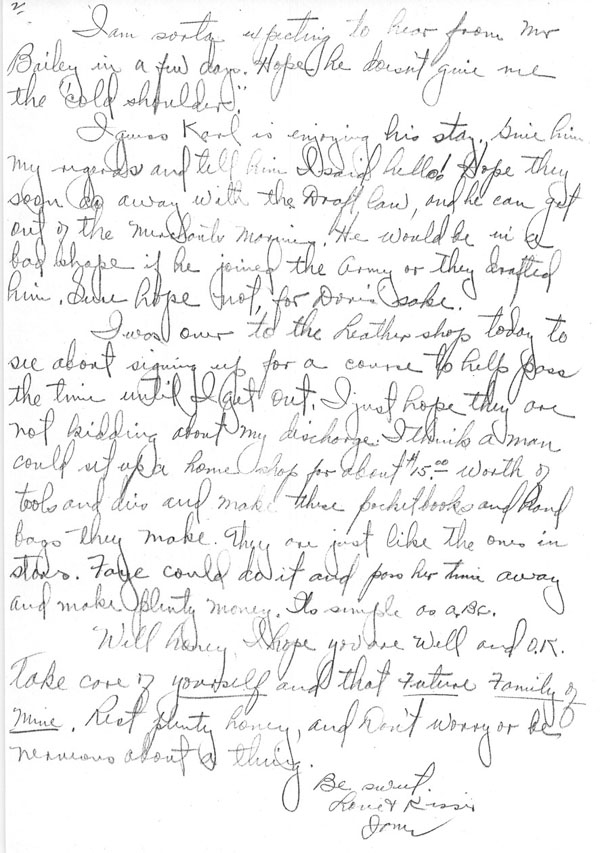 2/
I am sorta expecting to hear from Mr
Bailey in a few days. Hope he doesn't give me
the "cold shoulder".
I guess Karl is enjoying his stay. Give him
my regards and tell him I said hello! Hope they
soon do away with the Draft law, and he can get
out of the Merchants Marines. He would be in a
bad shape if he joined the Army or they drafted
him. Sure hope not, for Doris' sake.
I was over to the leather shop today to
see about signing up for a course to help pass
the time until I get out. I just hope they are
not kidding about my discharge. I think a man
could set up a home shop for about $15.00 worth of
tools and dies and make these pocketbooks and hand
bags they make. They are just like the ones in
stores. Faye could do it and pass her time away
and make plenty money. Its simple as a.B.c.
Well honey, I hope you are well and O.K.
Take care of yourself and that Future Family of
Mine. Rest plenty honey, and Don't worry or be
nervious about a thing.
Be sweet.
Love & Kisses